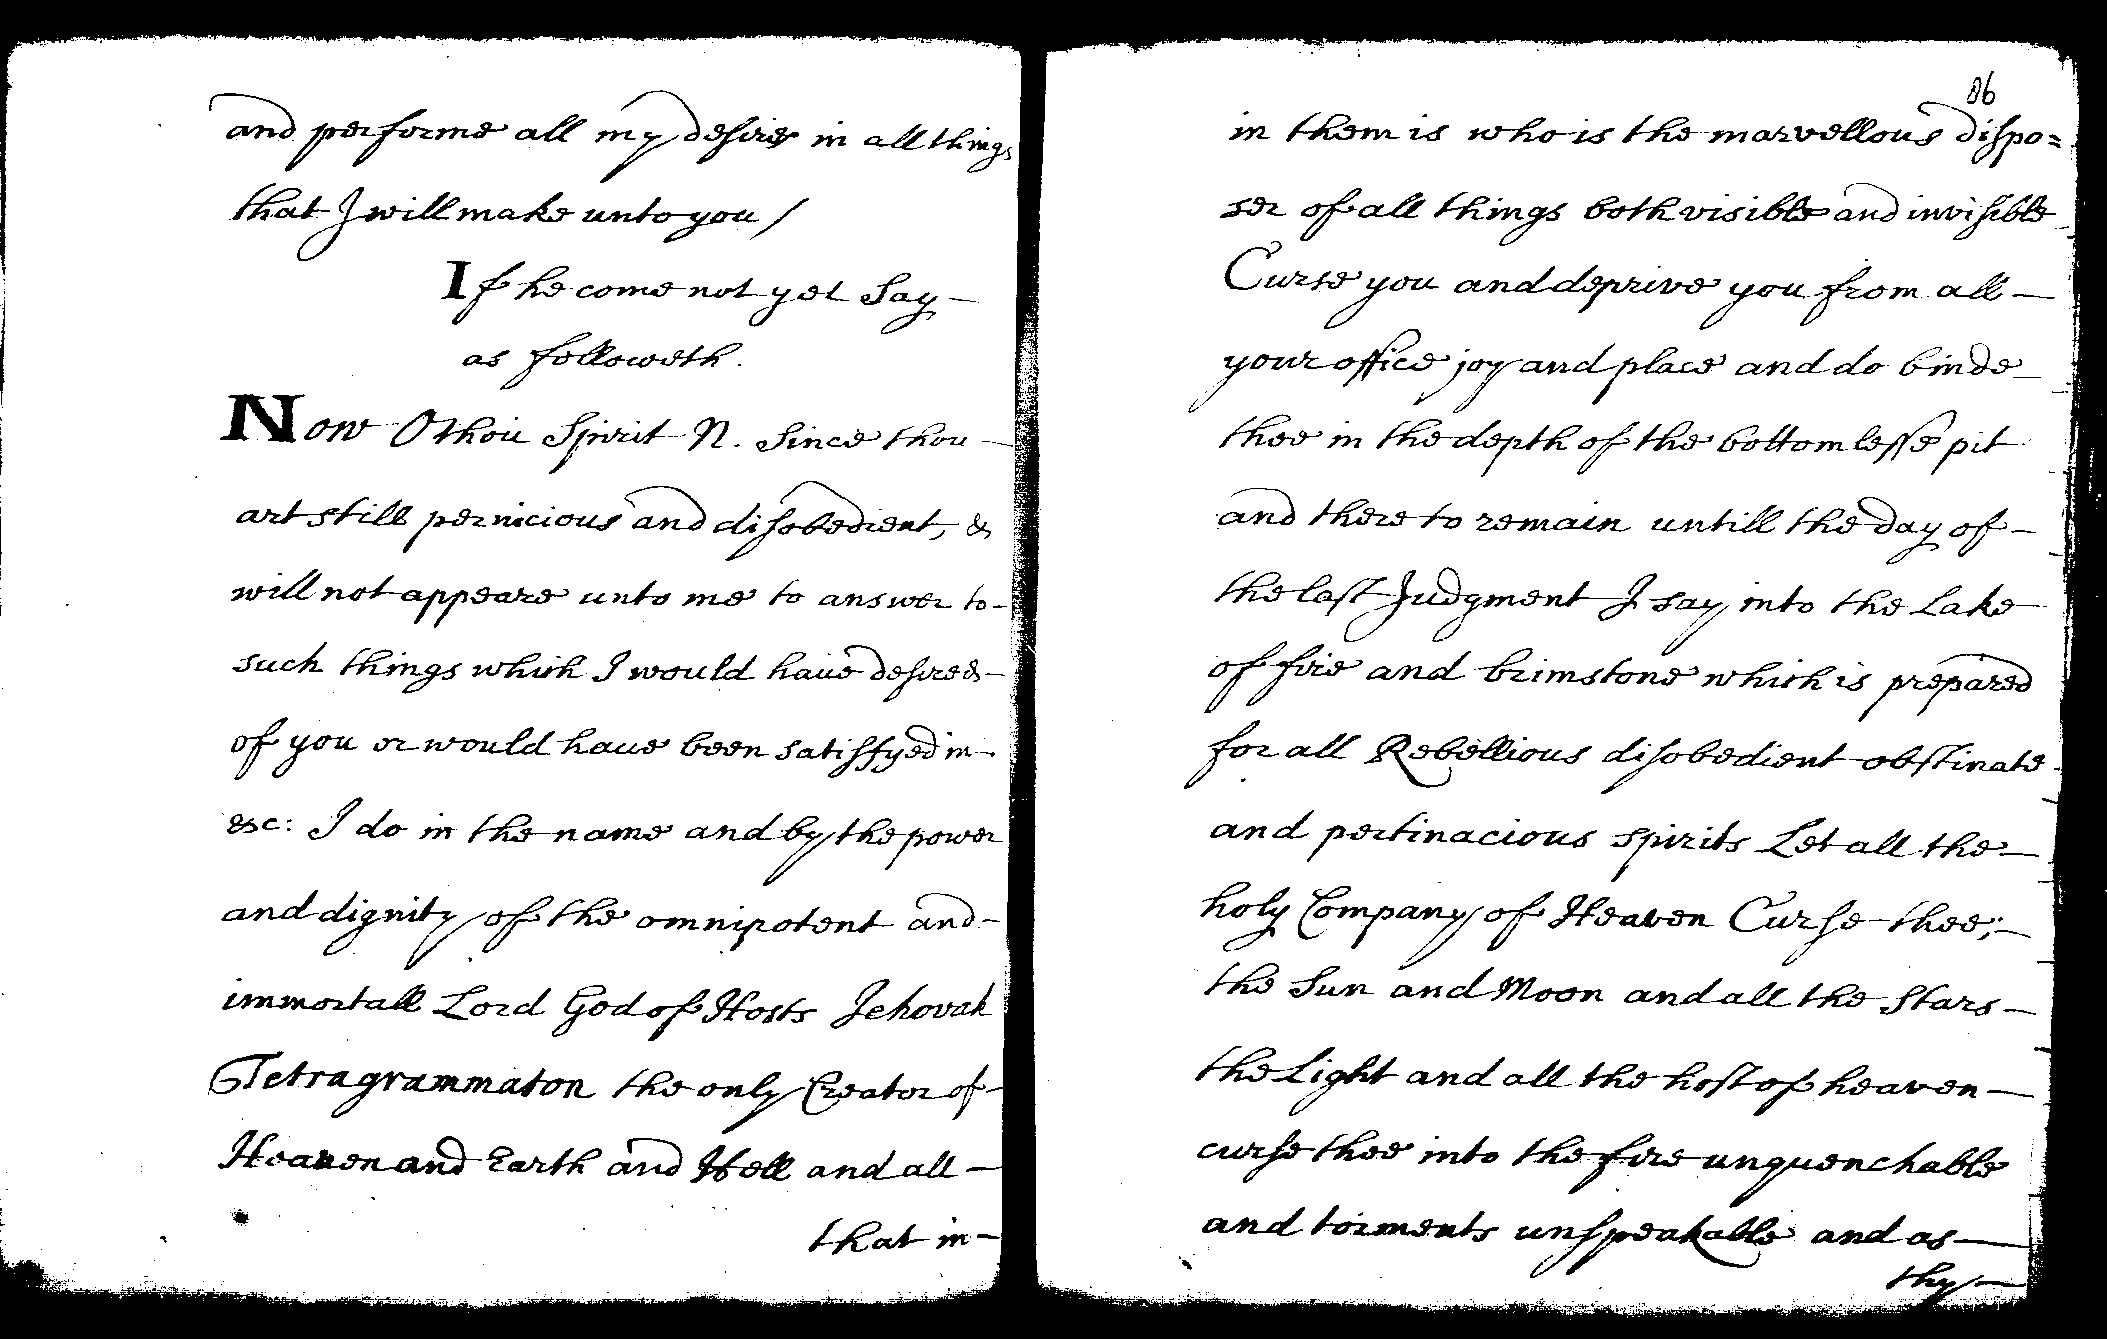 and performe all my desires in all things
that I will make unto you /
If he come not yet Say —
as followeth.
Now O thou Spirit N. Since thou —
art still pernicious and disobedient, &
will not appeare unto me to answer to -
such things which I would have desired —
of you or would have been satisfyed in -
&c: I do in the name and by the power
and dignity of the omnipotent and -
immortall Lord God of Hosts Jehovah
Tetragrammaton the only Creator of -
Heaven and Earth and Hell and all —
that in -
86
in them is who is the marvellous dispo=
ser of all things both visible and invisible
Curse you and deprive you from all —
your office joy and place and do binde —
thee in the depth of the bottomlesse pit
and there to remain untill the day of —
the last Judgment I say into the Lake
of fire and brimstone which is prepared
for all Rebellious disobedient obstinate
and pertinacious spirits Let all the —
holy Company of Heaven Curse thee; —
the Sun and Moon and all the Stars —
the Light and all the host of heaven —
curse thee into the fire unquenchable
and torments unspeakable and as —
thy —